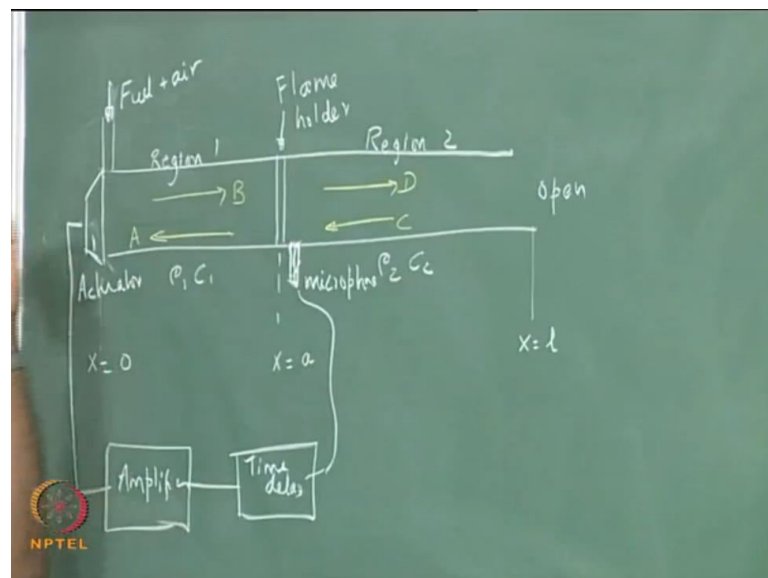 Fuel + air
Flame
holder
Region 1
Region 2
B
D
A
C
open
Actuator
ρ₁ C₁
microphno
ρ₂ C₂
x = 0
x = a
x = l
Amplif
Time
delay
NPTEL